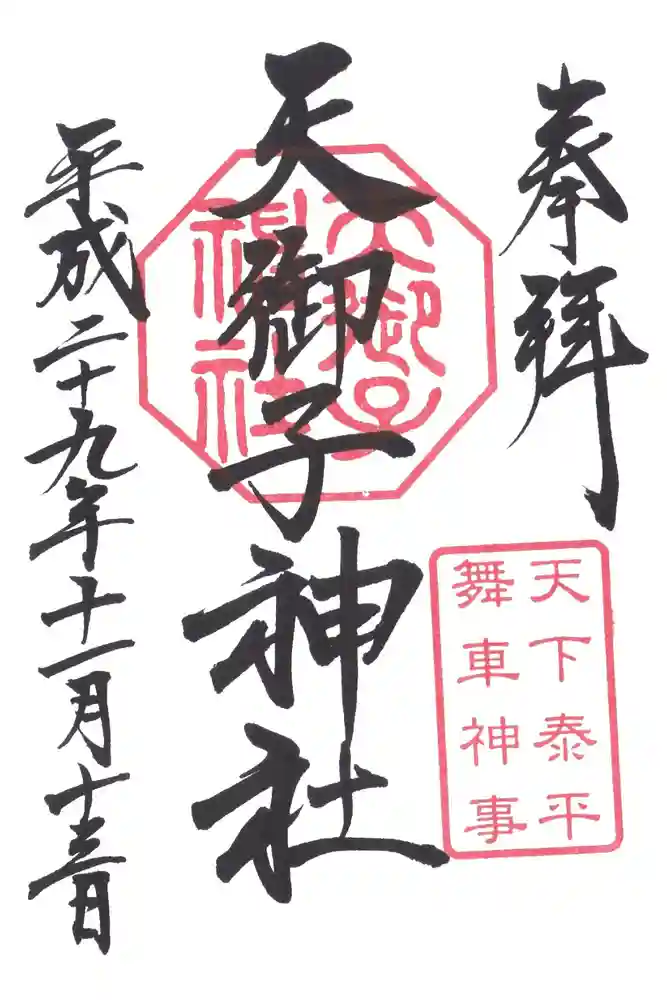 奉拝
天下泰平
舞車神事
天御子
神社
天御子神社
平成二十九年十一月十三日